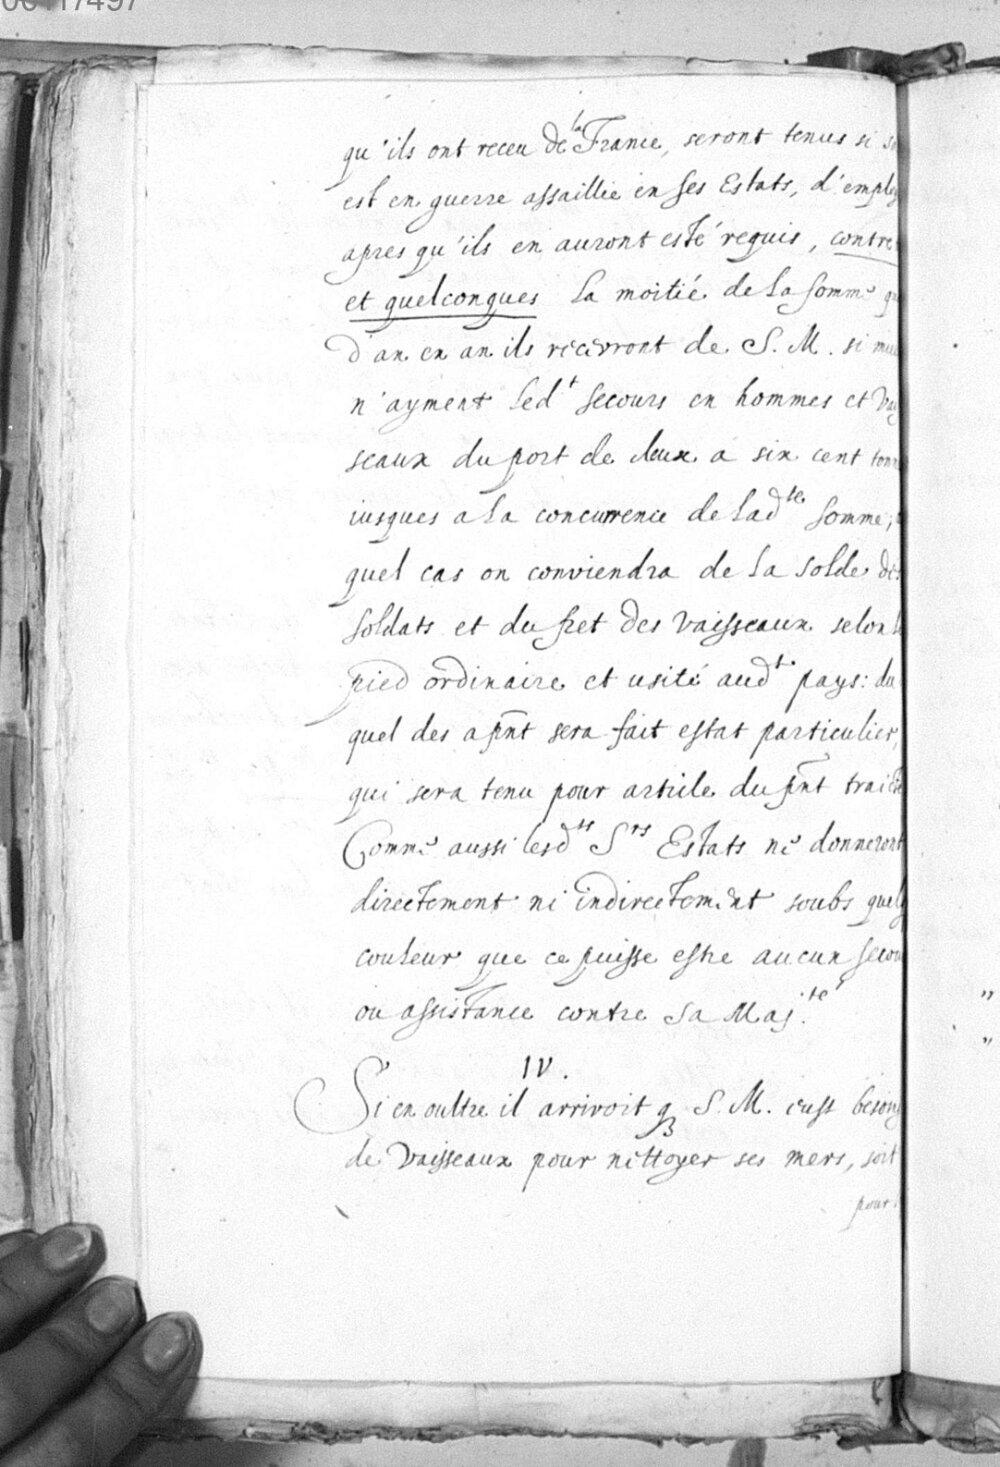 00417497
qu'ils ont receu de la France, seront tenus si
est en guerre assaillie en ses Estats, d'employ
apres qu'ils en auront esté requis, contre
et quelconques la moitié de la somme
d'an en an ils recevront de S. M. si
n'ayment led.t secours en hommes et Vai
sseaux du port de deux a six cent tonn
iusques a la concurrence de lad.te somme,
quel cas on conviendra de la solde des
soldats et du fret des vaisseaux selon l
pied ordinaire et usité aud.t pays: du
quel des apñt sera fait estat particulier,
qui sera tenu pour article du pñt traicté
Comme aussi lesd.ts S.rs Estats ne donneront
directement ni indirectement soubs quelq
couleur que ce puisse estre aucun secou
ou assistance contre Sa Maj.té
IV.
Si en oultre il arrivoit q S. M. eust besoing
de Vaisseaux pour nettoyer ses mers, soit
pour